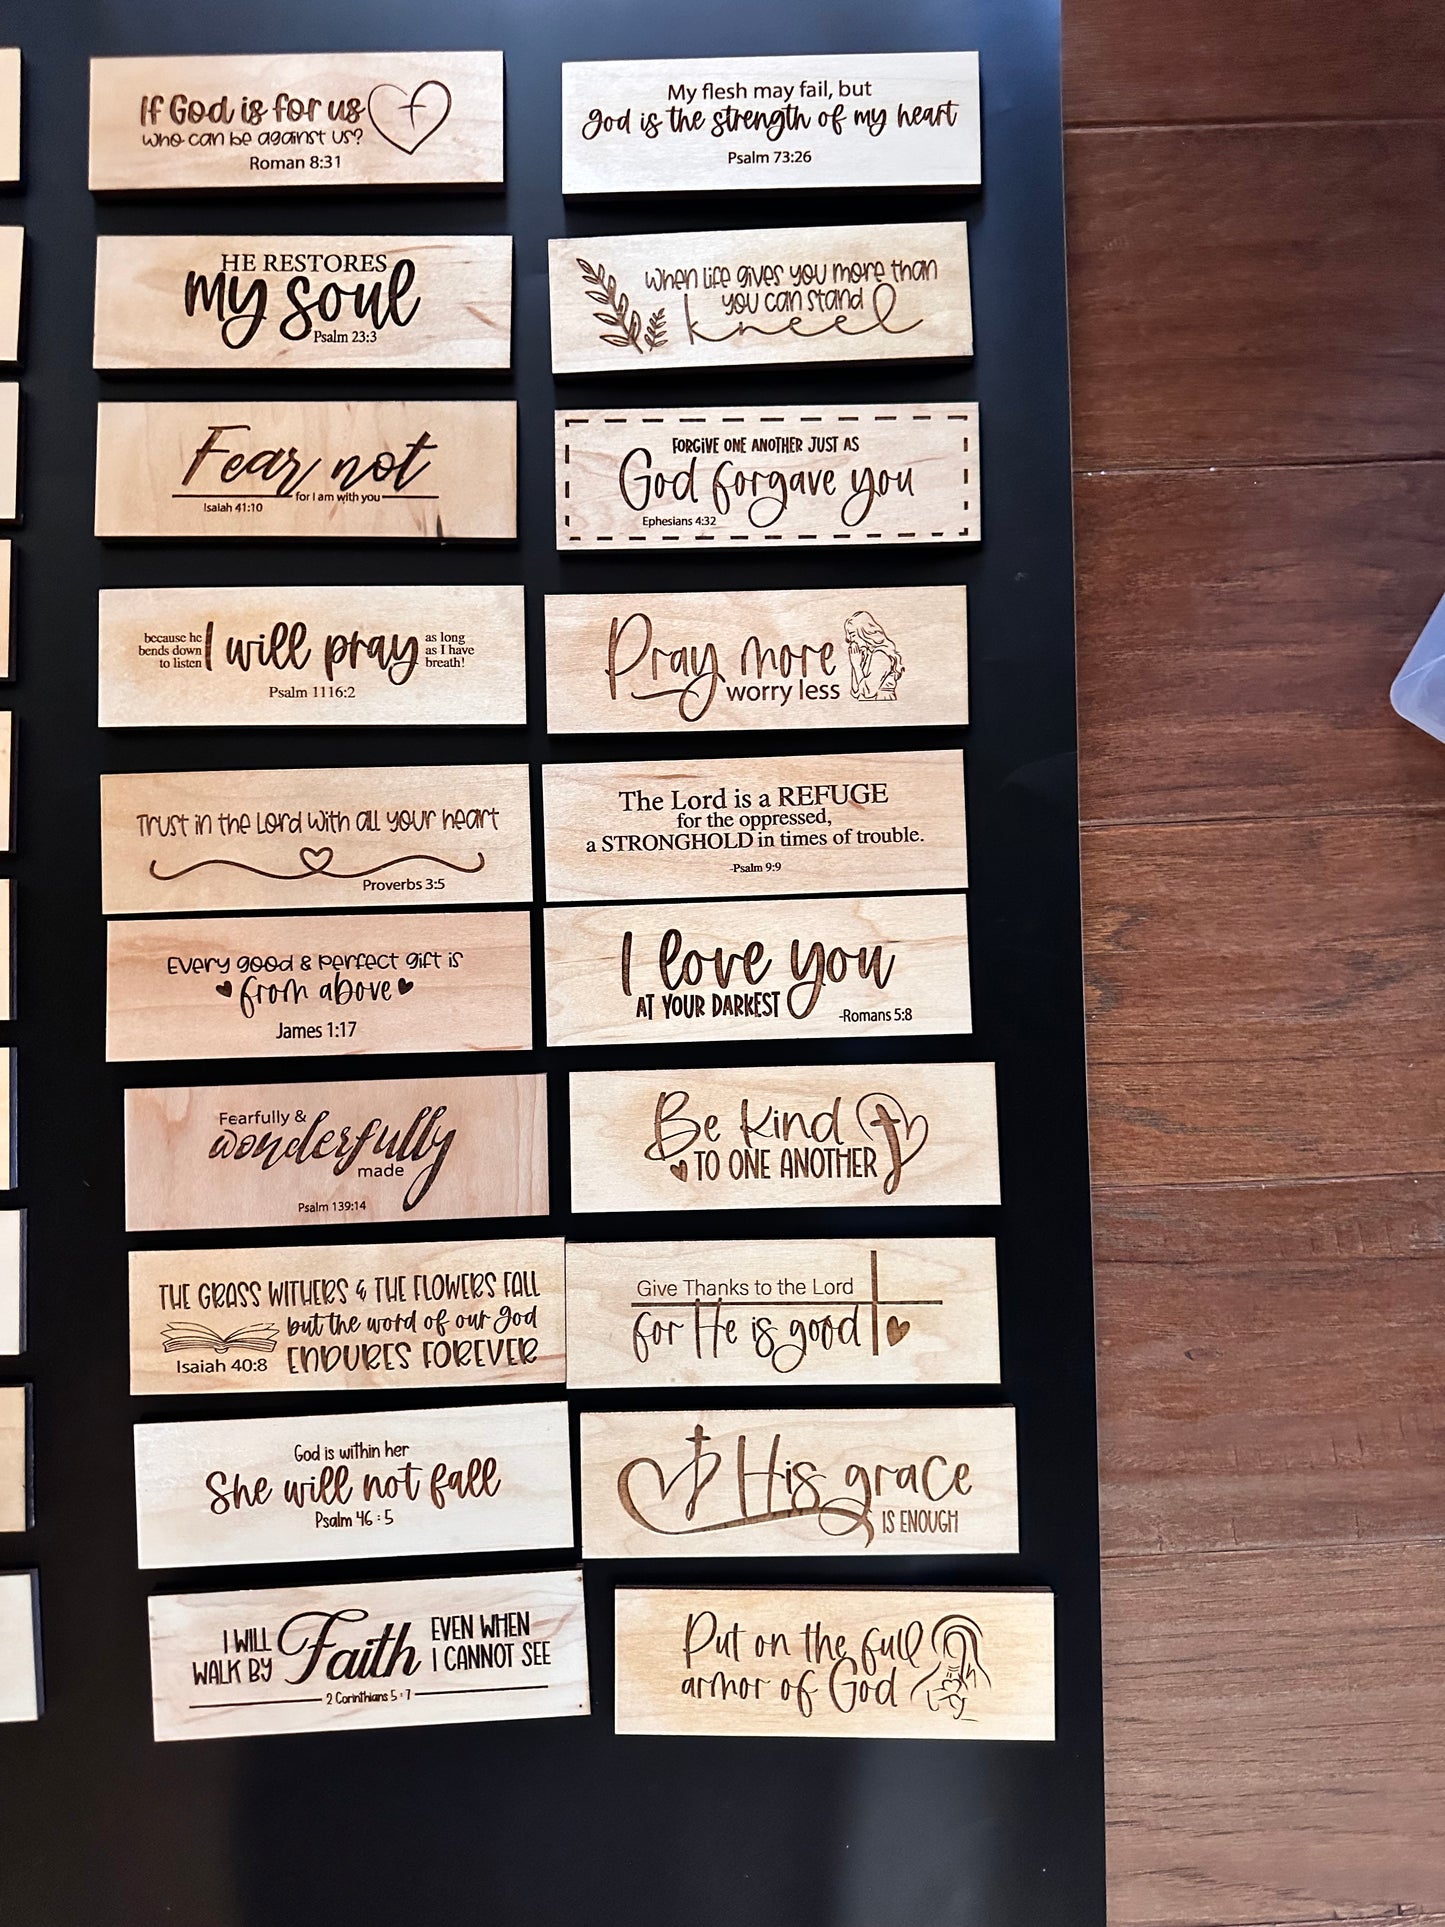 If God is for us
who can be against us?
Roman 8:31
My flesh may fail, but
god is the strength of my heart
Psalm 73:26
HE RESTORES
my soul
Psalm 23:3
When life gives you more than
you can stand
kneel
Fear not
for I am with you
Isaiah 41:10
FORGIVE ONE ANOTHER JUST AS
God forgave you
Ephesians 4:32
because he
bends down
to listen
I will pray
as long
as I have
breath!
Psalm 1116:2
Pray more
worry less
Trust in the Lord with all your heart
Proverbs 3:5
The Lord is a REFUGE
for the oppressed,
a STRONGHOLD in times of trouble.
-Psalm 9:9
Every good & perfect gift is
from above
James 1:17
I love you
AT YOUR DARKEST
-Romans 5:8
Fearfully &
wonderfully
made
Psalm 139:14
Be Kind
TO ONE ANOTHER
THE GRASS WITHERS & THE FLOWERS FALL
but the word of our god
ENDURES FOREVER
Isaiah 40:8
Give Thanks to the Lord
for He is good
God is within her
She will not fall
Psalm 46:5
His grace
IS ENOUGH
I WILL
WALK BY
Faith
EVEN WHEN
I CANNOT SEE
2 Corinthians 5:7
Put on the full
armor of God